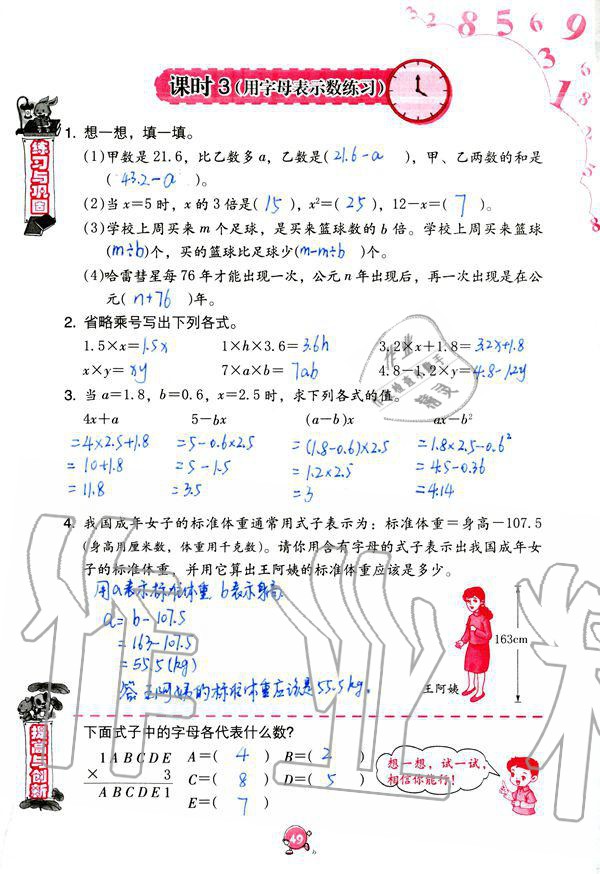 3 2 8 5 6 9
课时 3 (用字母表示数练习)
练习与巩固
1. 想一想，填一填。
(1)甲数是 21.6，比乙数多 a，乙数是( 21.6-a )，甲、乙两数的和是
( 43.2-a )。
(2)当 x＝5 时，x 的 3 倍是( 15 )，x²＝( 25 )，12－x＝( 7 )。
(3)学校上周买来 m 个足球，是买来篮球数的 b 倍。学校上周买来篮球
(m÷b)个，买的篮球比足球少(m-m÷b)个。
(4)哈雷彗星每 76 年才能出现一次，公元 n 年出现后，再一次出现是在公
元( n+76 )年。
2. 省略乘号写出下列各式。
1.5×x＝1.5x 1×h×3.6＝3.6h 3.2×x＋1.8＝3.2x+1.8
x×y＝xy 7×a×b＝7ab 4.8－1.2×y＝4.8-1.2y
3. 当 a＝1.8，b＝0.6，x＝2.5 时，求下列各式的值。
4x＋a 5－bx (a－b)x ax－b²
=4×2.5+1.8 =5-0.6×2.5 =(1.8-0.6)×2.5 =1.8×2.5-0.6²
=10+1.8 =5-1.5 =1.2×2.5 =4.5-0.36
=11.8 =3.5 =3 =4.14
4. 我国成年女子的标准体重通常用式子表示为：标准体重＝身高－107.5
(身高用厘米数，体重用千克数)。请你用含有字母的式子表示出我国成年女
子的标准体重，并用它算出王阿姨的标准体重应该是多少。
用a表示标准体重 b表示身高
a=b-107.5
=163-107.5
=55.5(kg)
答王阿姨的标准体重应该是55.5kg.
163cm
王阿姨
提高与创新
下面式子中的字母各代表什么数？
1ABCDE A＝( 4 ) B＝( 2 )
× 3 C＝( 8 ) D＝( 5 )
ABCDE1 E＝( 7 )
想一想，试一试，
相信你能行！
49
作业精